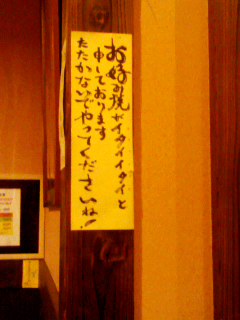 お好み焼がイタイイタイと
申しております
たたかないでやってくださいね!